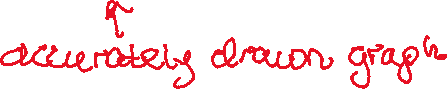 accurately drawn graph